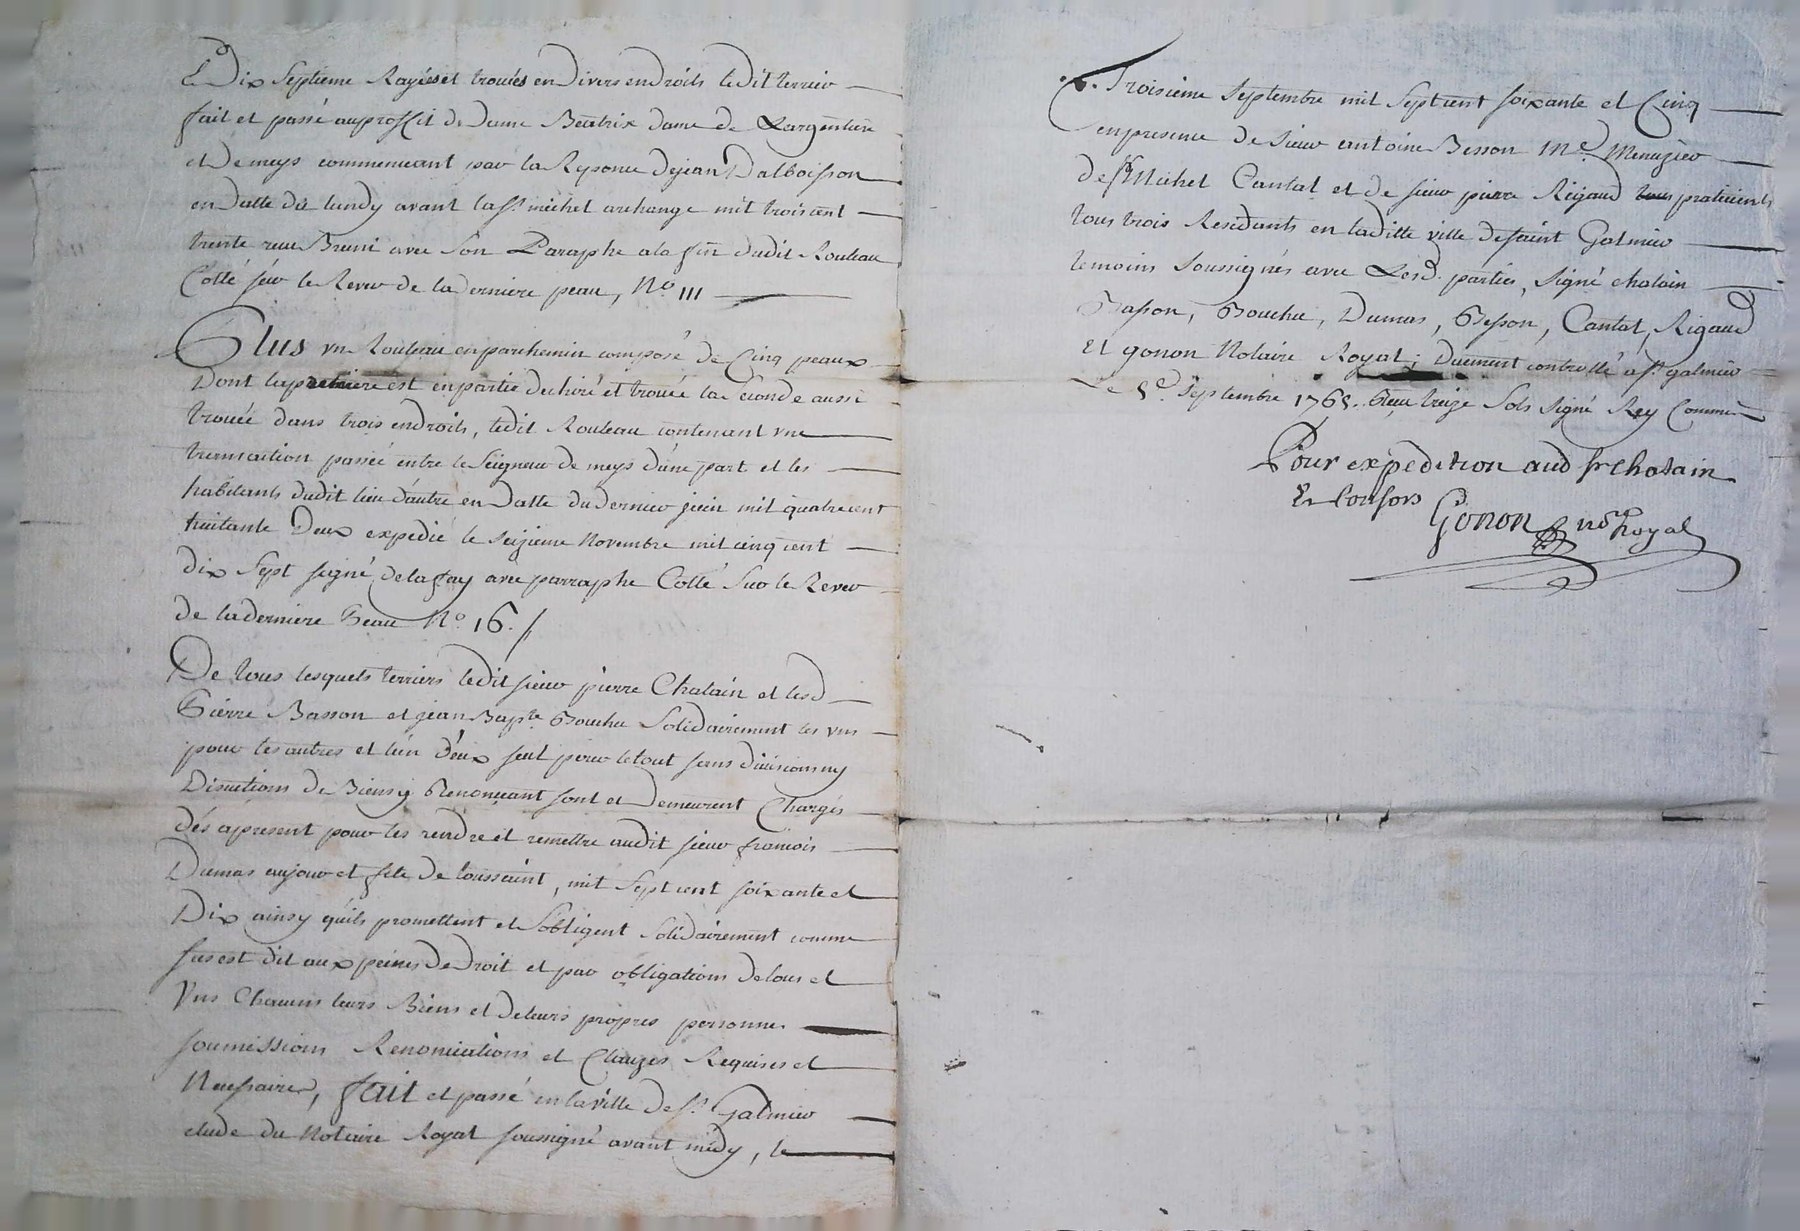 Et Dix Septieme Rayées et trouées en Divers endroits ledit terrier
fait et passé au proffit de Dame Beatrix dame de Largentiere
et De meys commencant par la Reponce de jean Dalboisson
en Datte du lundy avant la St. michel archange mil trois cent
trente reçu Bruni avec Son Paraphe a la fin dudit Rouleau
Cotté sur le Rever de la derniere peau, No. III
Plus vn Rouleau en parchemin composé de Cinq peaux
Dont la premiere est en partie dechiré et trouée la seconde aussi
trouée dans trois endroits, ledit Rouleau contenant vne
transaction passée entre le Seigneur de meys d'une part et les
habitants dudit lieu d'autre en Datte du Dernier juin mil quatre cent
huitante Deux expedié le seizieme Novembre mil cinq cent
dix Sept signé Delafay avec parraphe Cotté Sur le Rever
de la derniere Peau No. 16. /
De tous lesquels terriers ledit sieur pierre Chalain et lesd
Pierre Basson et jean Bapte. Bouchu Solidairement les vns
pour les autres et l'un D'eux seul pour le tout sans division ny
Discution De Biens y Renonçant sont et Demeurent Chargés
dés apresent pour les rendre et remettre audit sieur francois
Dumas au jour et fete De toussaint, mil Sept cent soixante et
Dix ainsy qu'ils promettent et S'obligent Solidairement comme
sus est dit aux peines De Droit et par obligations De tous et
Vns Chacuns leurs Biens et De leurs propres personnes
soumissions Renonciations et Clauzes Requises et
Necessaires, fait et passé en la ville De St. Galmier
etude du Notaire Royal soussigné avant midy, le
Troisieme Septembre mil Sept cent soixante et Cinq
en presence de Sieur antoine Besson Me. Menuzier
De sr. Michel Cantal et de sieur pierre Rigaud praticients
tous trois Residants en la ditte ville de saint Galmier
temoins Soussignés avec Lesd. parties, Signé chalain
Basson, Bouchu, Dumas, Besson, Cantal, Rigaud
Et gonon Notaire Royal; Duement controllé a St. galmier
Le 5e. Septembre 1765. Reçu treize Sols Signé Rey Commis
Pour expedition aud sr chalain
Et Consors
Gonon nore. Royal